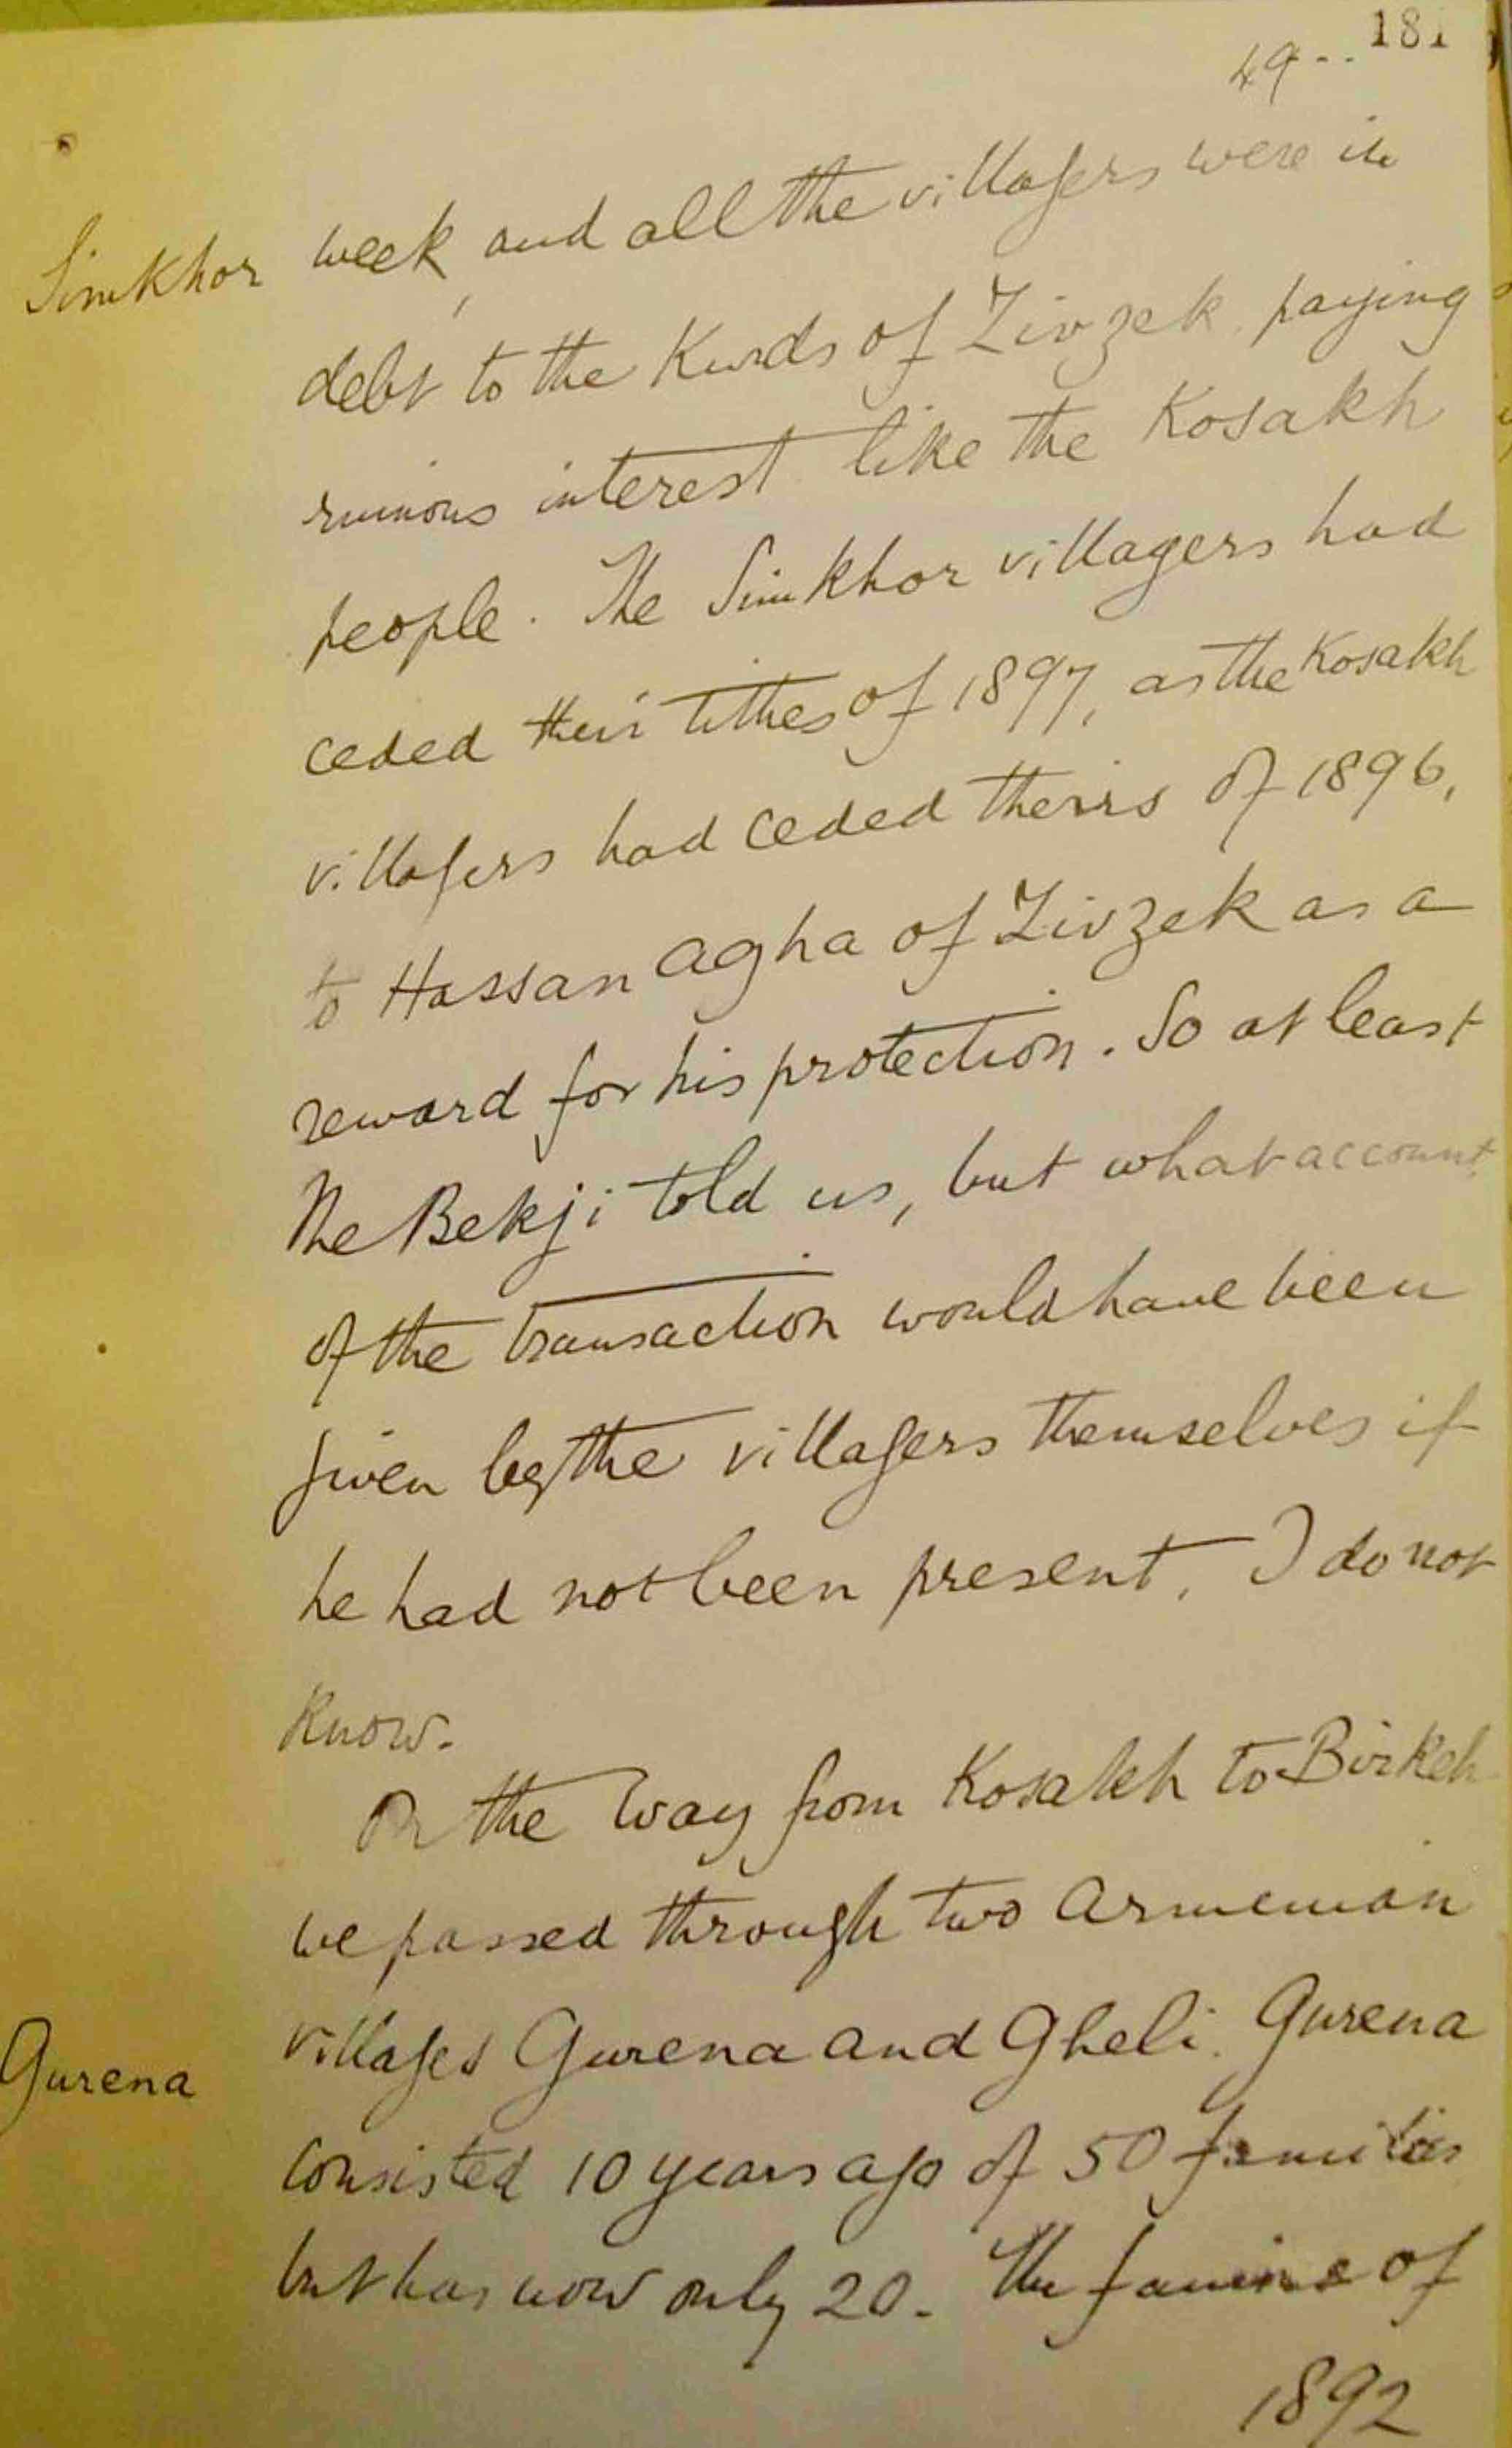 181
49--
Simkhor week, and all the villagers were in
debt to the Kurds of Zivzek, paying
ruinous interest like the Kosakh
people. The Simkhor villagers had
ceded their tithes of 1897, as the Kosakh
villagers had ceded theirs of 1896,
to Hassan Agha of Zivzek as a
reward for his protection. So at least
the Bekji told us, but what account
of the transaction would have been
given by the villagers themselves if
he had not been present, I do not
know.
On the way from Kosakh to Birkeh
we passed through two Armenian
villages Gurena and Gheli. Gurena
Gurena
consisted 10 years ago of 50 families
but has now only 20. The famine of
1892